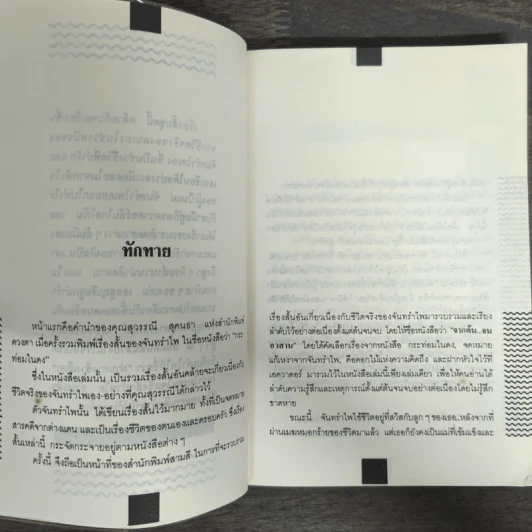 ทักทาย
หน้าแรกคือคำนำของคุณสุวรรณี สุคนธา แห่งสำนักพิมพ์
ดวงตา เมื่อครั้งรวมพิมพ์เรื่องสั้นของจันทร์รำไพ ในชื่อหนังสือว่า “กระ
ท่อมในดง”
ซึ่งในหนังสือเล่มนั้น เป็นรวมเรื่องสั้นอันคล้ายจะเกี่ยวเนื่องกับ
ชีวิตจริงของจันทร์รำไพเอง-อย่างที่คุณสุวรรณีได้กล่าวไว้
ตัวจันทร์รำไพนั้น ได้เขียนเรื่องสั้นไว้มากมาย ทั้งที่เป็นจดหมาย
สารคดีจากต่างแดน และเป็นเรื่องชีวิตของตนเองและครอบครัว ซึ่งเรื่อง
สั้นเหล่านี้ กระจัดกระจายอยู่ตามหนังสือต่าง ๆ
ครั้งนี้ จึงถือเป็นหน้าที่ของสำนักพิมพ์สามสี ในการที่จะรวบรวม
เรื่องสั้นอันเกี่ยวเนื่องกับชีวิตจริงของจันทร์รำไพมารวบรวมและเรียง
ลำดับไว้อย่างต่อเนื่องตั้งแต่ต้นจนจบ โดยให้ชื่อหนังสือว่า “จากต้น..จน
อวสาน” โดยได้คัดเลือกเรื่องจากหนังสือ กระท่อมในดง, จดหมาย
แก้เหงาจากจันทร์รำไพ, คือดอกไม้แห่งความคิดถึง และฝากหัวใจไว้ที่
เอควาดอร์ มารวมไว้ในหนังสือเล่มนี้เพียงเล่มเดียว เพื่อให้คนอ่านได้
ลำดับความรู้สึกและเหตุการณ์ตั้งแต่ต้นจนจบอย่างต่อเนื่องโดยไม่รู้สึก
ขาดหาย
ขณะนี้ จันทร์รำไพใช้ชีวิตอยู่ที่สวิสกับลูก ๆ ของเธอ..หลังจากที่
ผ่านเมฆหมอกร้ายของชีวิตมาแล้ว แต่เธอก็ยังคงเป็นแม่ที่เข้มแข็งและ